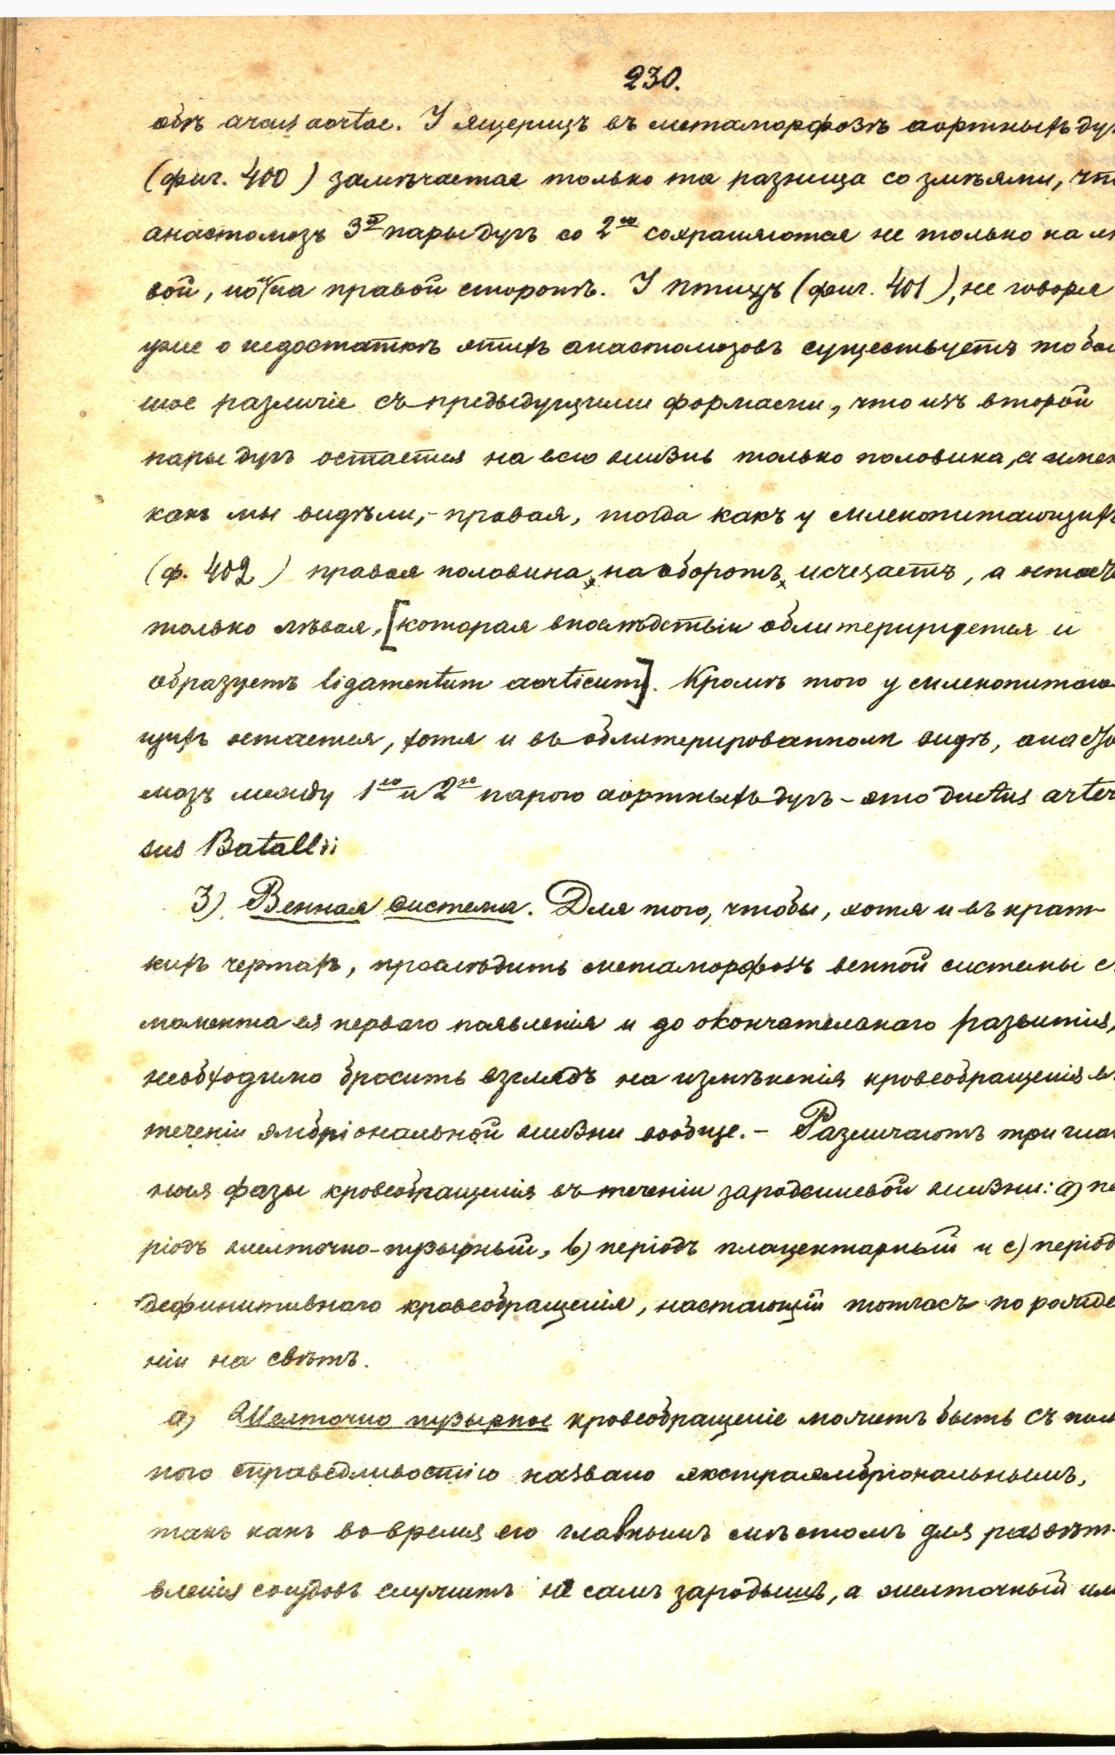 230.
обѣ arcus aortae. У ящерицъ въ метаморфозѣ аортныхъ ду
(фиг. 400) замѣчается только та разница со змѣями, что
анастомозъ 3й пары дугъ со 2ю сохраняются не только на лѣ
вой, но и на правой сторонѣ. У птицъ (фиг. 401), не говоря
уже о недостаткѣ этихъ анастомозовъ существуетъ то бол
шое различіе съ предыдущими формами, что изъ второй
пары дугъ остается на всю жизнь только половина, а имен
какъ мы видѣли, - правая, тогда какъ у млекопитающихъ
(ф. 402) правая половина, наоборотъ, исчезаетъ, а остает
только лѣвая, [которая впослѣдствіи облитерируется и
образуетъ ligamentum aorticum]. Кромѣ того у млекопитаю-
щихъ остается, хотя и въ облитерированномъ видѣ, анасто
мозъ между 1ю и 2ю парою аортныхъ дугъ - это ductus arter
sus Batallii
3) Венная система. Для того, чтобы, хотя и въ крат-
кихъ чертахъ, прослѣдить метаморфозъ венной системы с
момента ея перваго появленія и до окончательнаго развитія,
необходимо бросить взглядъ на измѣненія кровеобращенія в
теченіи эмбріональной жизни вообще. - Различаютъ три глав
ныя фазы кровеобращенія въ теченіи зародышевой жизни: a) пе
ріодъ желточно-пузырный, b) періодъ плацентарный и c) період
дефинитивнаго кровеобращенія, настающій тотчасъ по рожде
ніи на свѣтъ.
a) Желточно пузырное кровеобращеніе можетъ быть съ пол
ною справедливостію названо экстраэмбріональнымъ,
такъ какъ во время его главнымъ мѣстомъ для развѣт-
вленія сосудовъ служитъ не самъ зародышъ, а желточный или